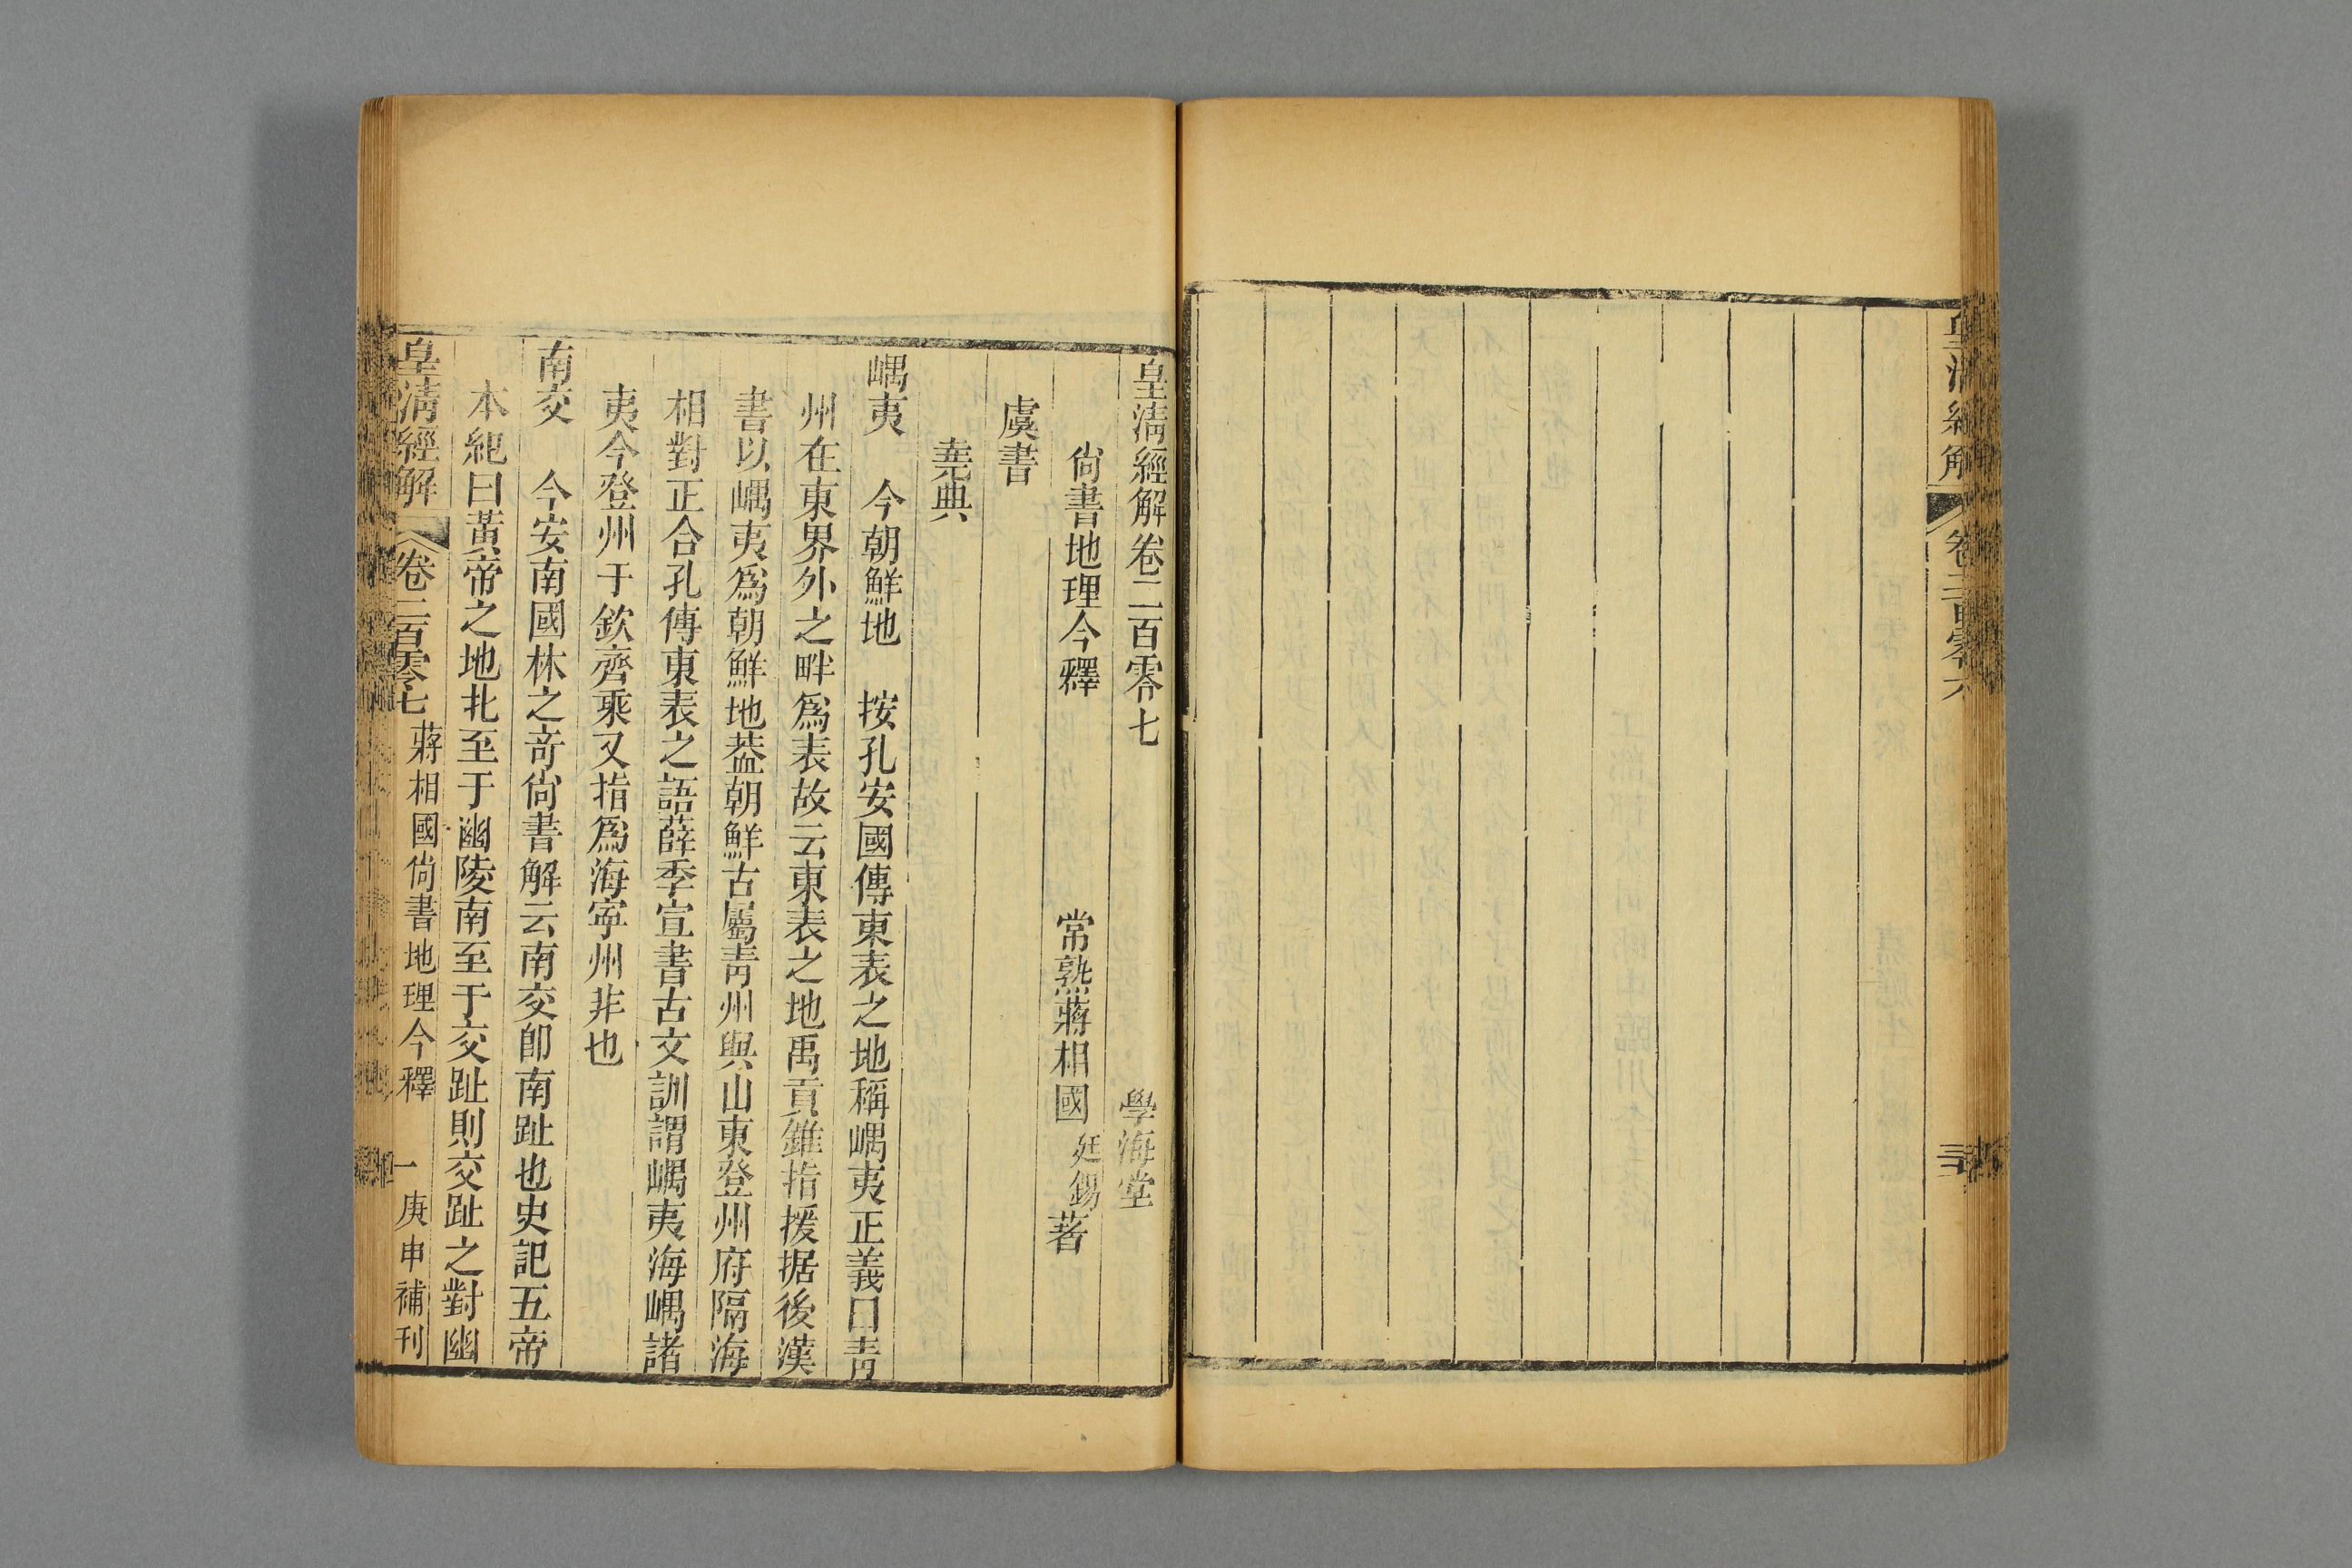 皇清經解
卷二百零六
皇清經解卷二百零七　學海堂
尙書地理今釋　常熟蔣相國廷錫著
虞書
堯典
嵎夷　今朝鮮地　按孔安國傳東表之地稱嵎夷正義曰靑
州在東界外之畔爲表故云東表之地禹貢錐指援据後漢
書以嵎夷爲朝鮮地葢朝鮮古屬靑州與山東登州府隔海
相對正合孔傳東表之語薛季宣書古文訓謂嵎夷海嵎諸
夷今登州于欽齊乘又指爲海寧州非也
南交　今安南國林之奇尙書解云南交卽南趾也史記五帝
本紀曰黃帝之地北至于幽陵南至于交趾則交趾之對幽
皇清經解　卷二百零七　蔣相國尙書地理今釋　一　庚申補刊